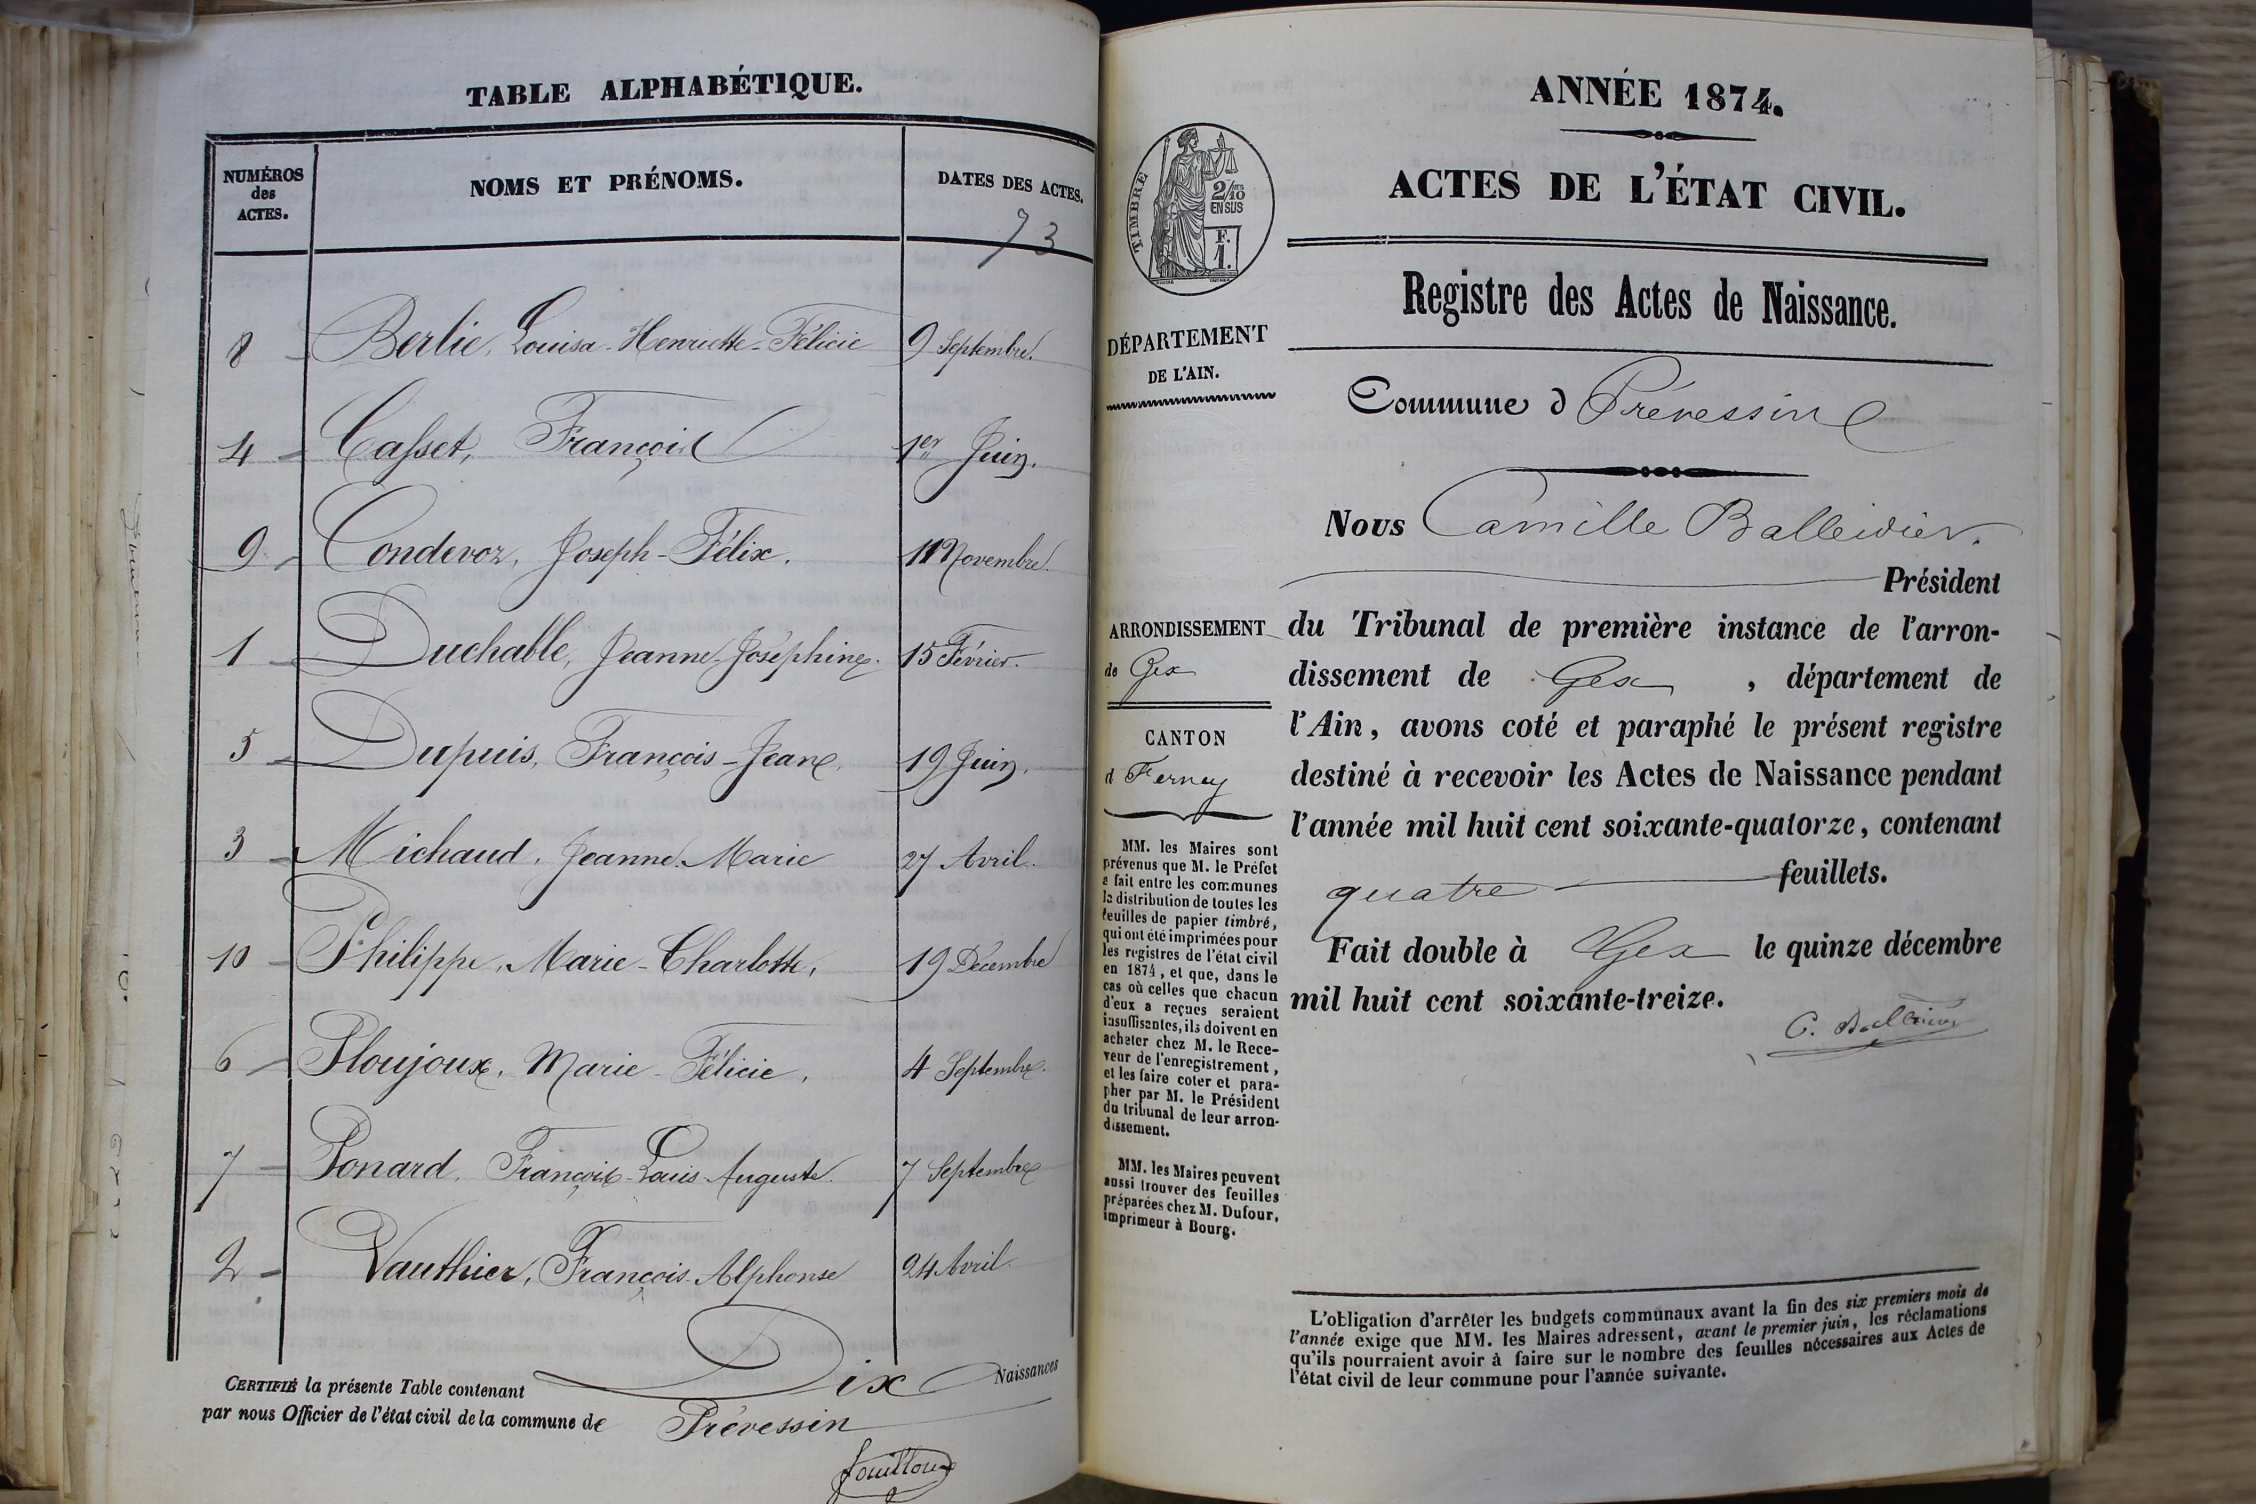 TABLE ALPHABÉTIQUE.
NUMÉROS
des
ACTES.
NOMS ET PRÉNOMS.
DATES DES ACTES.
73
8 Berlie, Louisa-Henriette-Félicie 9 Septembre.
4 Casset, François 1er Juin.
9 Condevoz, Joseph-Félix. 11 Novembre.
1 Duchable, Jeanne-Joséphine. 15 Février.
5 Dupuis, François-Jean. 19 Juin.
3 Michaud, Jeanne-Marie 27 Avril.
10 Philippe, Marie-Charlotte, 19 Décembre
6 Ploujoux, Marie-Félicie, 4 Septembre.
7 Ponard, François-Louis-Auguste. 7 Septembre
2 Vauthier, François-Alphonse 24 Avril.
CERTIFIÉ la présente Table contenant Dix Naissances
par nous Officier de l'état civil de la commune de Prévessin
ANNÉE 1874.
ACTES DE L'ÉTAT CIVIL.
TIMBRE
2/10
EN SUS
F.
1.
Registre des Actes de Naissance.
DÉPARTEMENT
DE L'AIN.
Commune d Prévessin
Nous Camille Balleidier.
Président
du Tribunal de première instance de l'arron-
dissement de Gex, département de
l'Ain, avons coté et paraphé le présent registre
destiné à recevoir les Actes de Naissance pendant
l'année mil huit cent soixante-quatorze, contenant
quatre feuillets.
Fait double à Gex le quinze décembre
mil huit cent soixante-treize.
C. Balleidier
ARRONDISSEMENT
de Gex
CANTON
d Ferney
MM. les Maires sont
prévenus que M. le Préfet
a fait entre les communes
la distribution de toutes les
feuilles de papier timbré,
qui ont été imprimées pour
les registres de l'état civil
en 1874, et que, dans le
cas où celles que chacun
d'eux a reçues seraient
insuffisantes, ils doivent en
acheter chez M. le Rece-
veur de l'enregistrement,
et les faire coter et para-
pher par M. le Président
du tribunal de leur arron-
dissement.
MM. les Maires peuvent
aussi trouver des feuilles
préparées chez M. Dufour,
imprimeur à Bourg.
L'obligation d'arrêter les budgets communaux avant la fin des six premiers mois de
l'année exige que MM. les Maires adressent, avant le premier juin, les réclamations
qu'ils pourraient avoir à faire sur le nombre des feuilles nécessaires aux Actes de
l'état civil de leur commune pour l'année suivante.